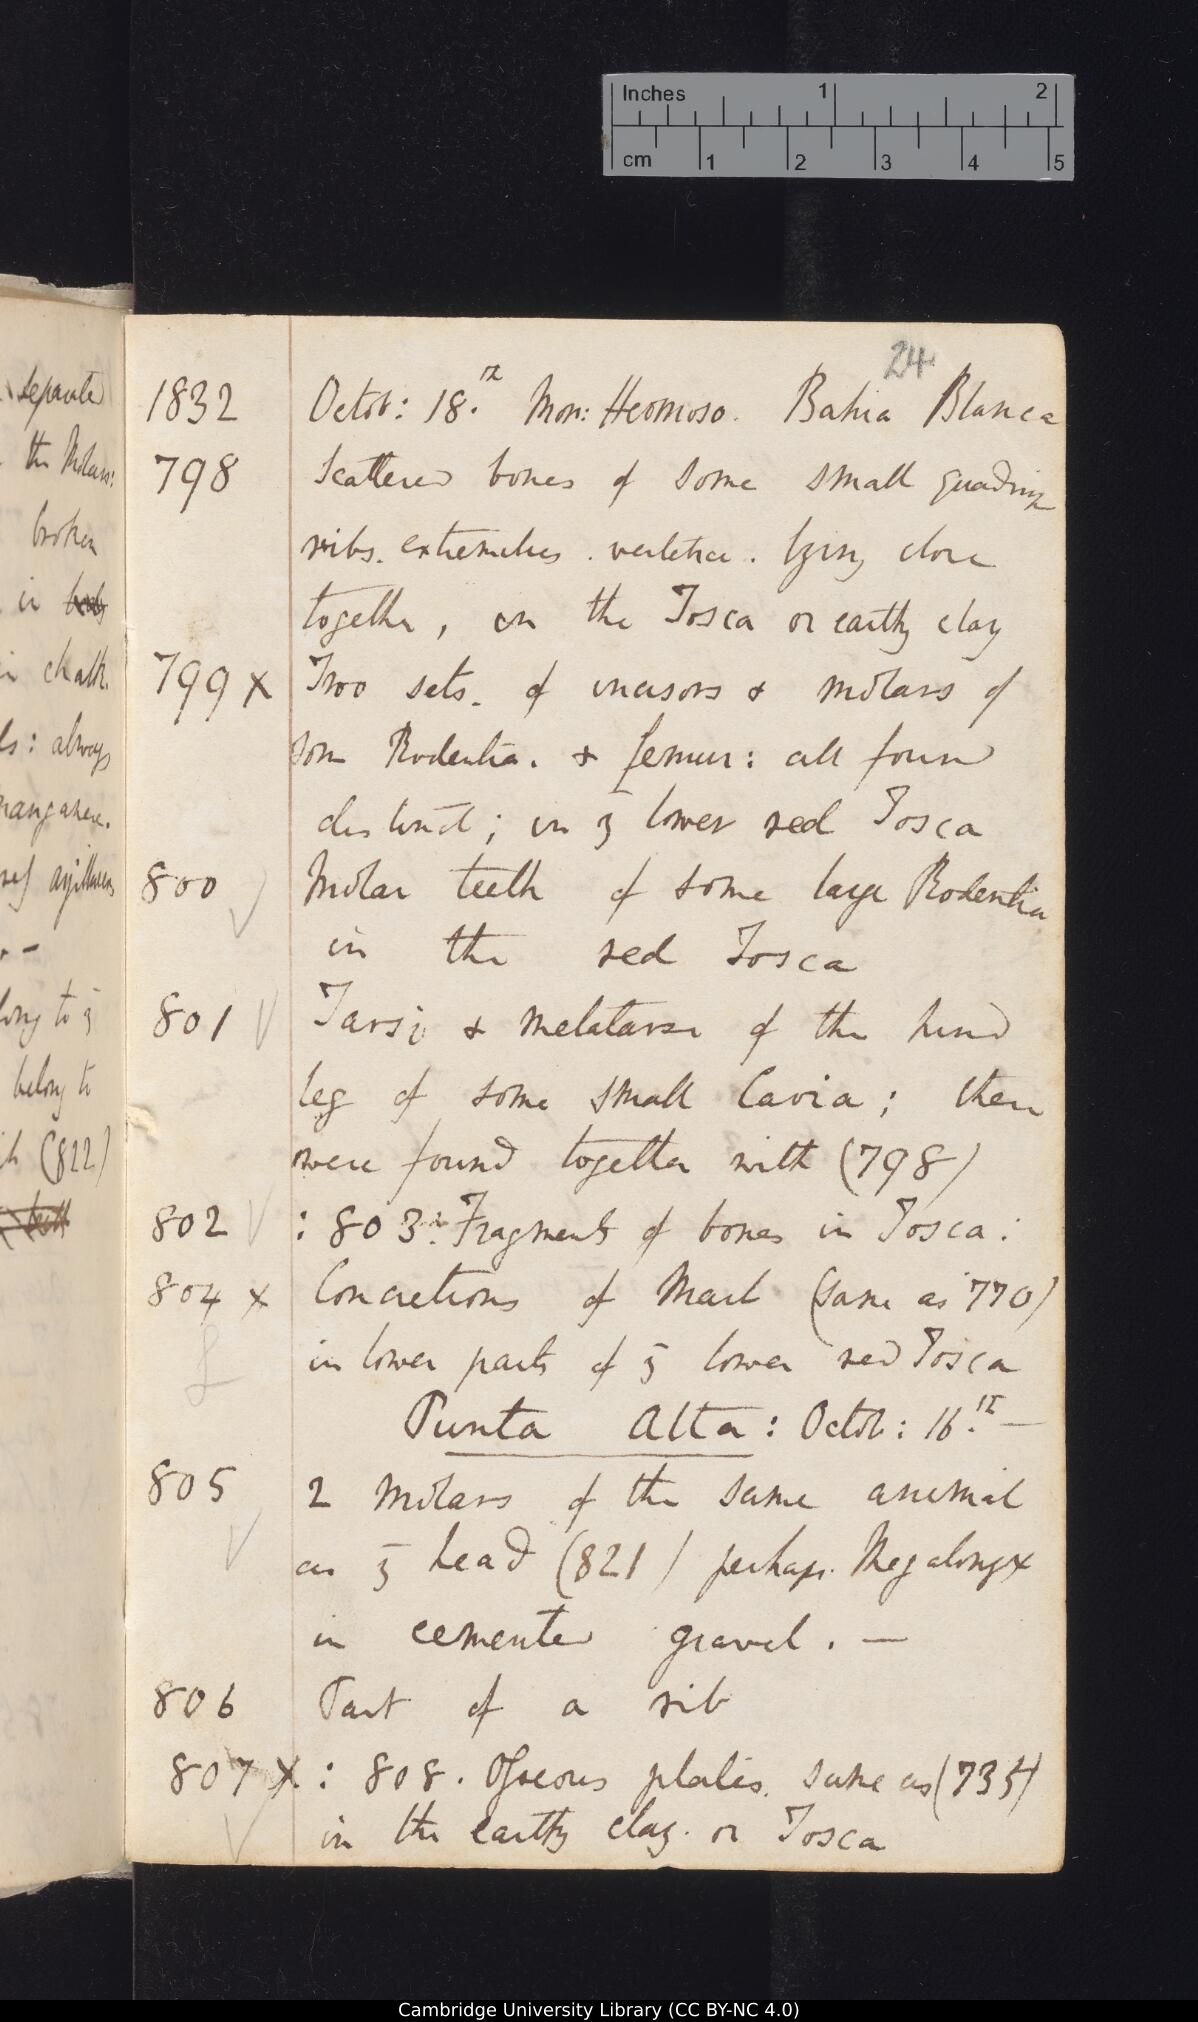 Inches 1 2
cm 1 2 3 4 5
separate
the Molars:
broken
in
in chalk.
ls: always
manganese.
long to ȝ
belong to
(822)
teeth
24
1832 Octob: 18.th Mon: Hermoso. Bahia Blanca
798 Scattered bones of some small quadrup
ribs. extremities. vertebræ. lying close
together, in the Tosca or earthy clay
799 x Two sets. of incisors & molars of
som Rodentia. & femur: all found
distinct; in ȝ lower red Tosca
800 Molar teeth of some large Rodentia
in the red Tosca
801 Tarsi & metatarsi of the hind
leg of some small Cavia; there
were found together with (798)
802 : 803: Fragments of bones in Tosca:
804 x Concretions of Marl (same as 770)
in lower parts of ȝ lower red Tosca
Punta Alta: Octob: 16.th —
805 2 molars of the same animal
as ȝ head (821) perhaps. Megalonyx
in cemented gravel. —
806 Part of a rib
807 x : 808. Osseous plates. same as (735)
in the earthy clay. or Tosca
Cambridge University Library (CC BY-NC 4.0)